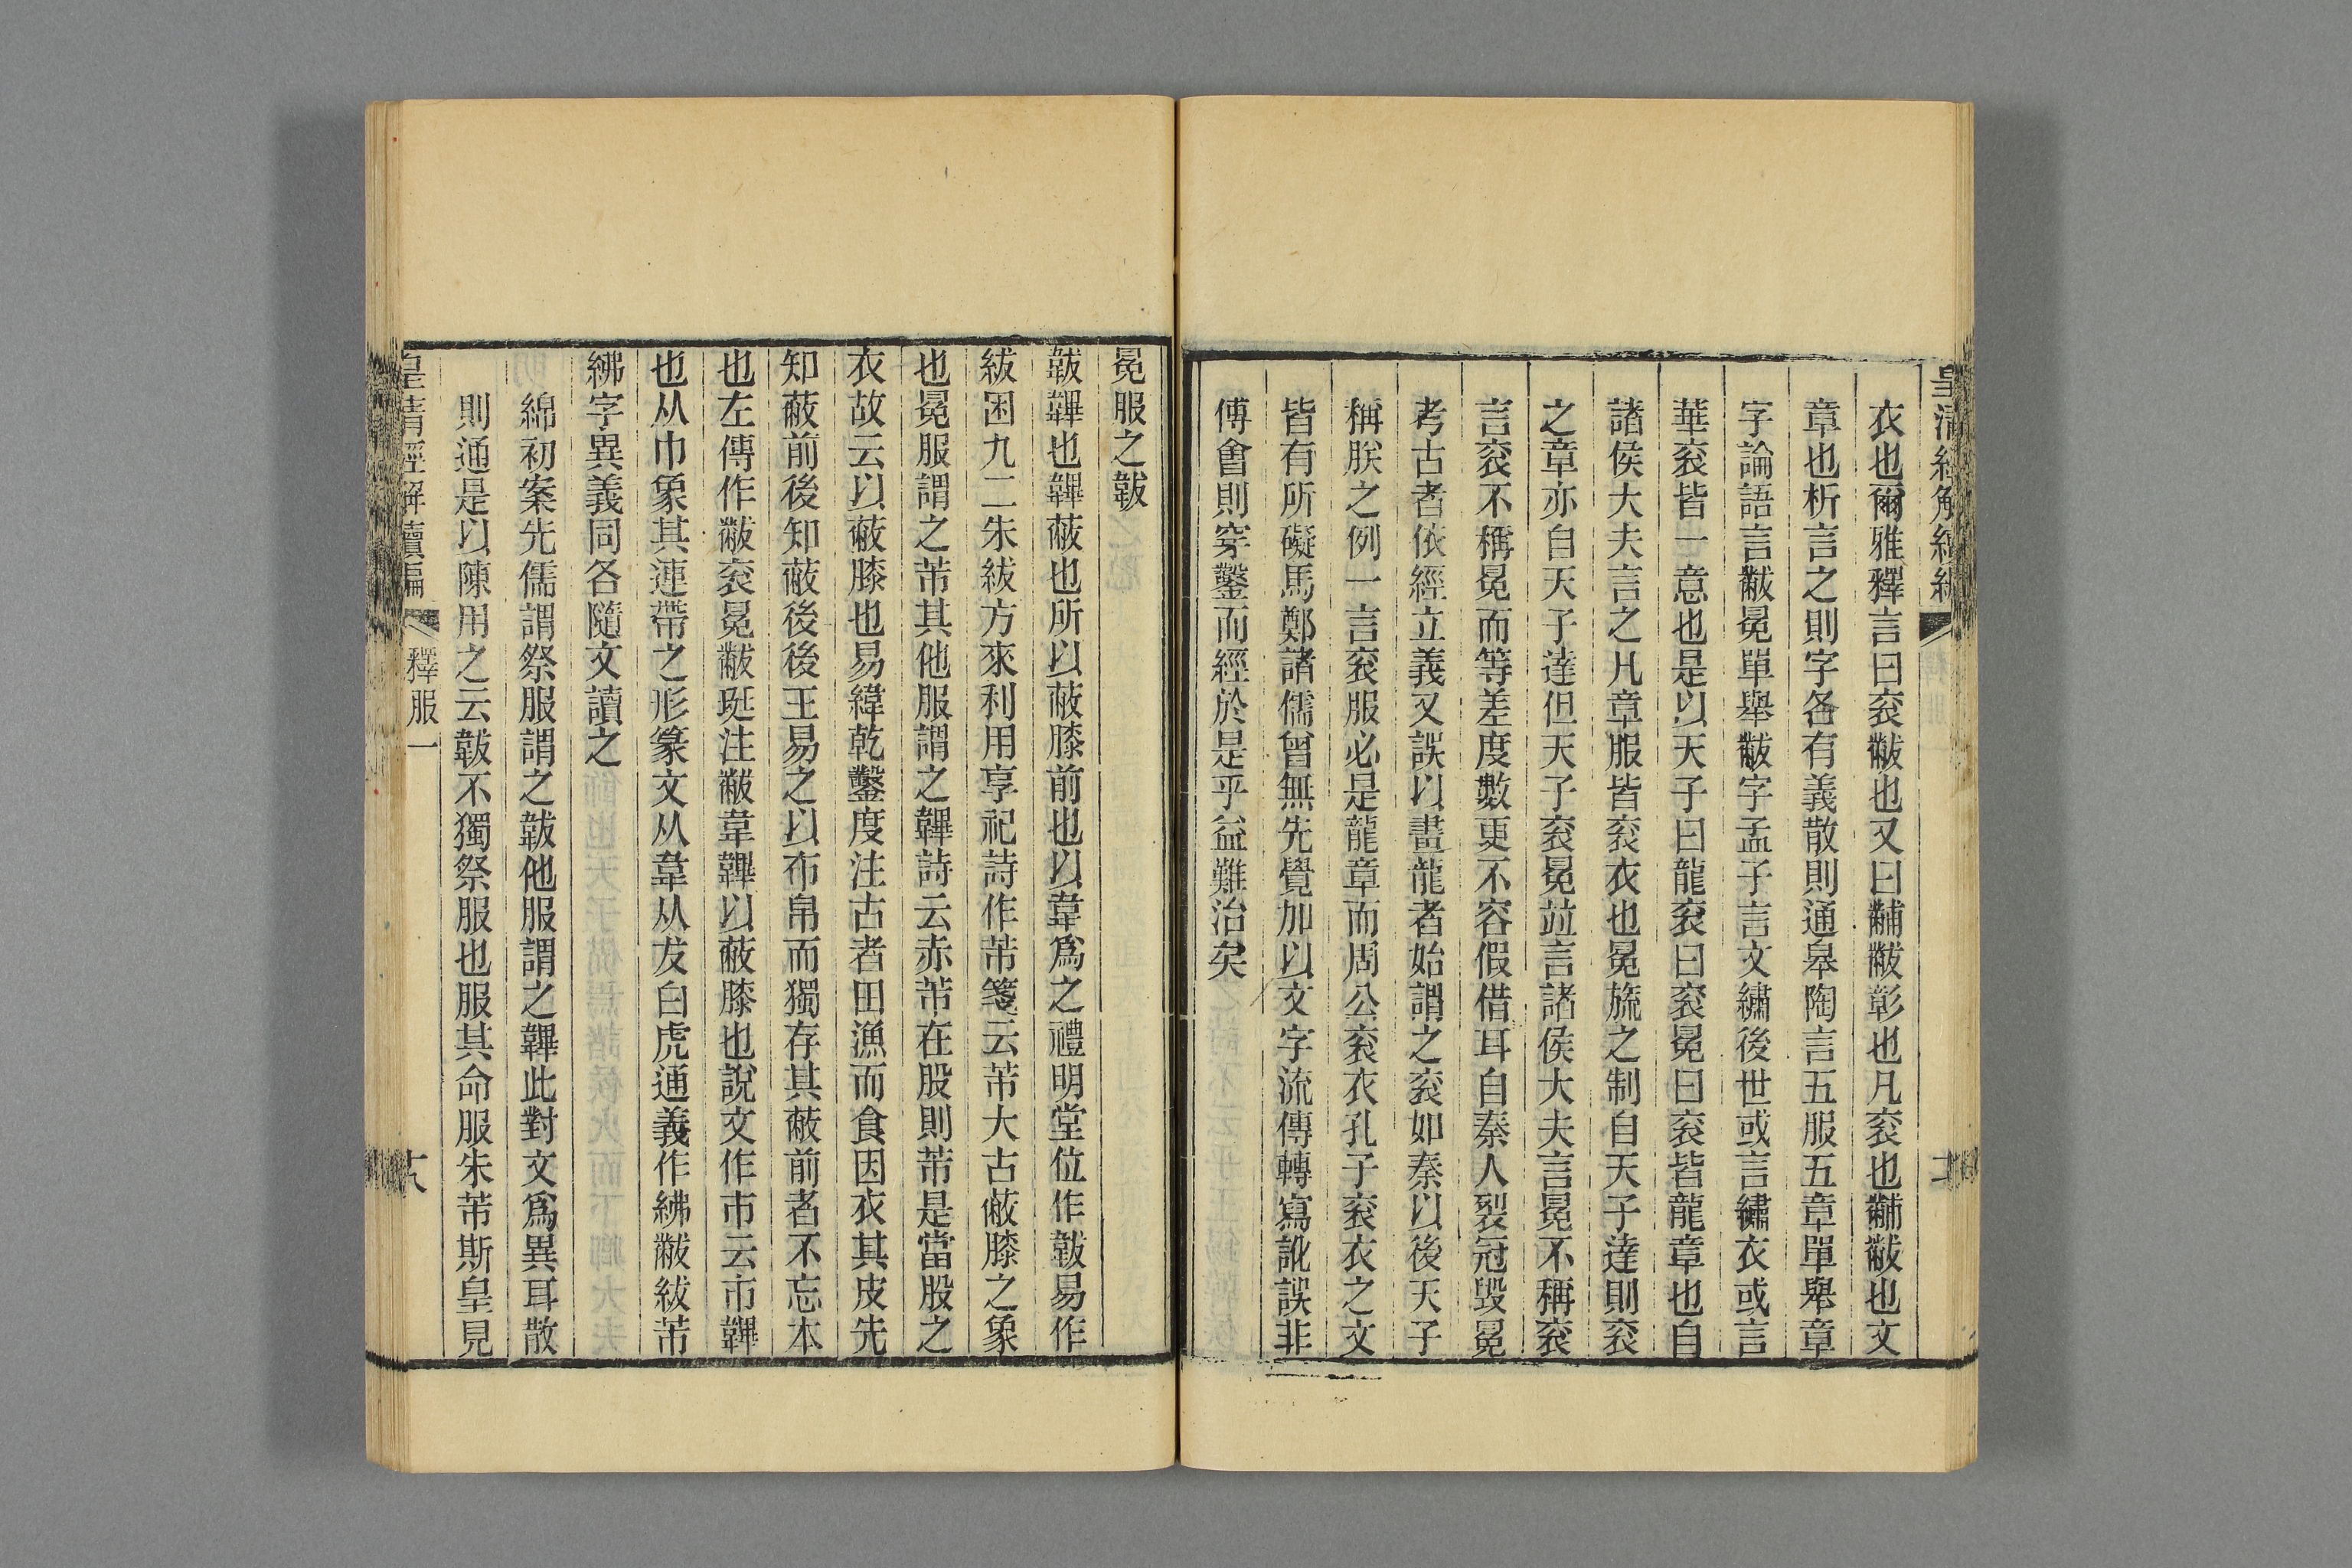 皇清經解續編
衣也爾雅釋言曰衮黻也又曰黼黻彰也凡衮也黼黻也文
章也析言之則字各有義散則通皋陶言五服五章單舉章
字論語言黻冕單舉黻字孟子言文繡後世或言繡衣或言
華衮皆一意也是以天子曰龍衮曰衮冕曰衮皆龍章也自
諸侯大夫言之凡章服皆衮衣也冕旒之制自天子達則衮
之章亦自天子達但天子衮冕竝言諸侯大夫言冕不稱衮
言衮不稱冕而等差度數更不容假借耳自秦人裂冠毀冕
考古者依經立義又誤以畫龍者始謂之衮如秦以後天子
稱朕之例一言衮服必是龍章而周公衮衣孔子衮衣之文
皆有所礙馬鄭諸儒曾無先覺加以文字流傳轉寫訛誤非
傅會則穿鑿而經於是乎益難治矣
冕服之韍
韍韠也韠蔽也所以蔽膝前也以韋爲之禮明堂位作韍易作
紱困九二朱紱方來利用享祀詩作芾箋云芾大古蔽膝之象
也冕服謂之芾其他服謂之韠詩云赤芾在股則芾是當股之
衣故云以蔽膝也易緯乾鑿度注古者田漁而食因衣其皮先
知蔽前後知蔽後後王易之以布帛而獨存其蔽前者不忘本
也左傳作黻衮冕黻珽注黻韋韠以蔽膝也說文作市云市韠
也从巾象其連帶之形篆文从韋从犮白虎通義作紼黻紱芾
紼字異義同各隨文讀之
綿初案先儒謂祭服謂之韍他服謂之韠此對文爲異耳散
則通是以陳用之云韍不獨祭服也服其命服朱芾斯皇見
皇清經解續編
釋服一